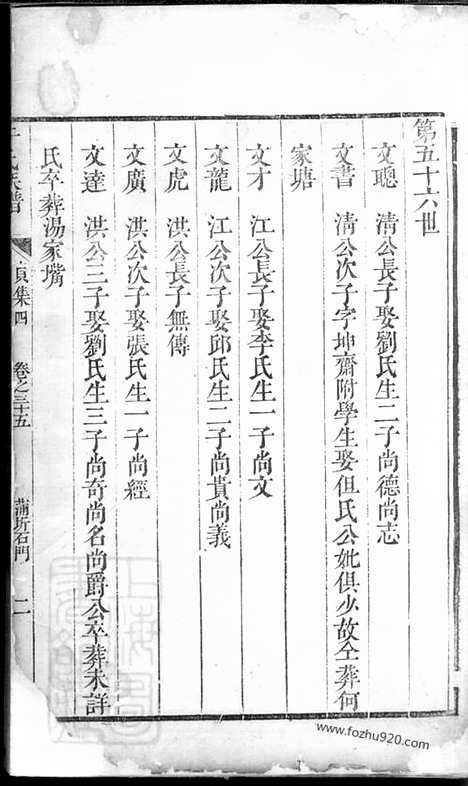 第五十六世
文聰 清公長子娶劉氏生二子尚德尚志
文書 清公次子字坤齋附學生娶但氏公妣俱少故仝葬何
家塘
文才 江公長子娶李氏生一子尚文
文龍 江公次子娶邱氏生二子尚貴尚義
文虎 洪公長子無傳
文廣 洪公次子娶張氏生一子尚經
文達 洪公三子娶劉氏生三子尚奇尚名尚爵公卒葬未詳
氏卒葬湯家嘴
氏族譜 貞集四 卷之三十五 蒲圻石門 二
www.fozhu920.com